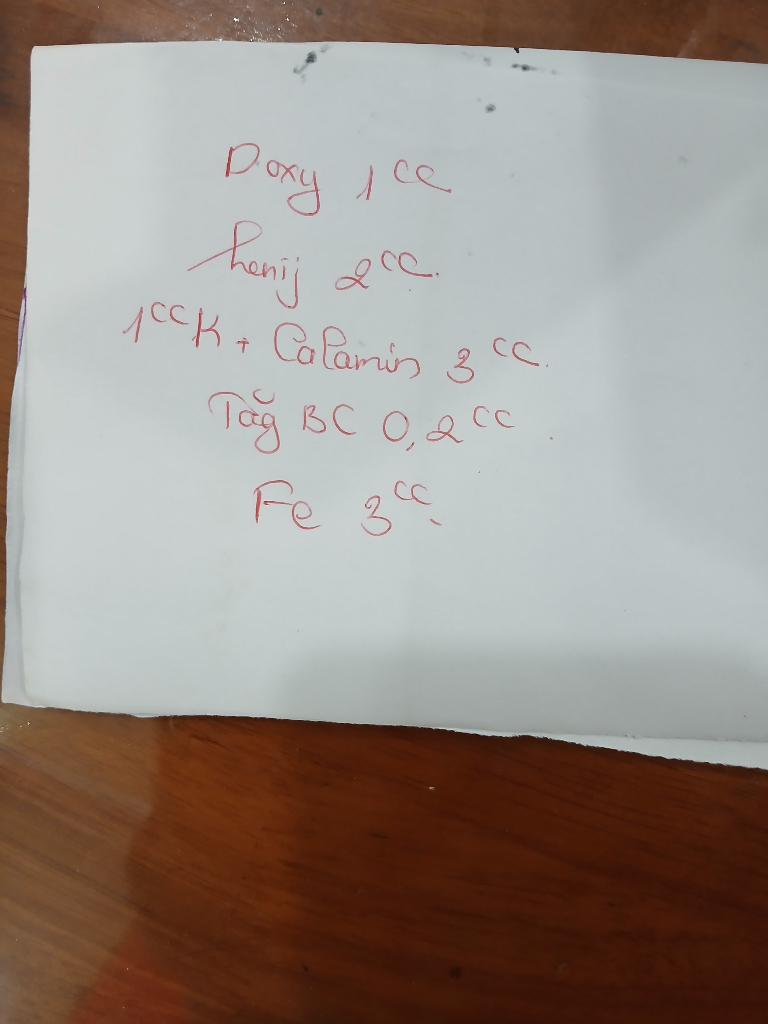 Doxy 1cc
henij 2cc.
1cc K + Calamin 3cc.
Tăg BC 0,2cc.
Fe 3cc.